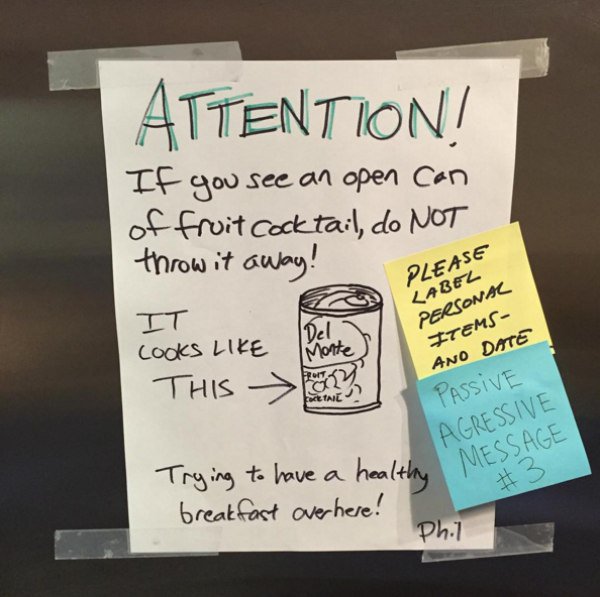 ATTENTION!
If you see an open can
of fruit cocktail, do NOT
throw it away!
IT
LOOKS LIKE
THIS →
Del
Monte
FRUIT
COCKTAIL
Trying to have a healthy
breakfast over here!
Phil
PLEASE
LABEL
PERSONAL
ITEMS-
AND DATE
PASSIVE
AGRESSIVE
MESSAGE
#3